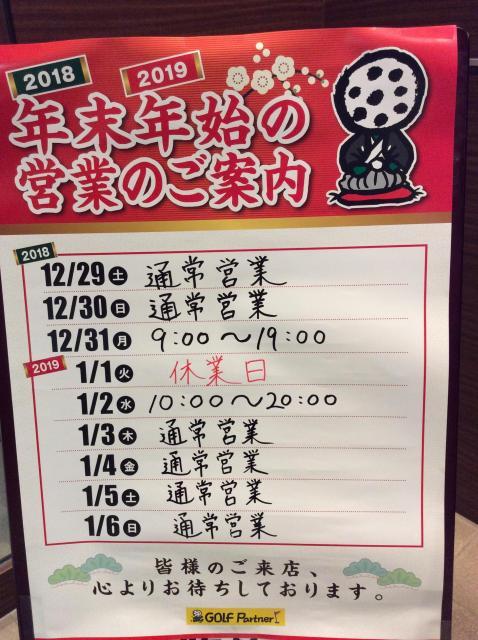 2018 2019
年末年始の
営業のご案内
2018
12/29土 通常営業
12/30日 通常営業
12/31月 9:00～19:00
2019
1/1火 休業日
1/2水 10:00～20:00
1/3木 通常営業
1/4金 通常営業
1/5土 通常営業
1/6日 通常営業
皆様のご来店、
心よりお待ちしております。
GOLF Partner